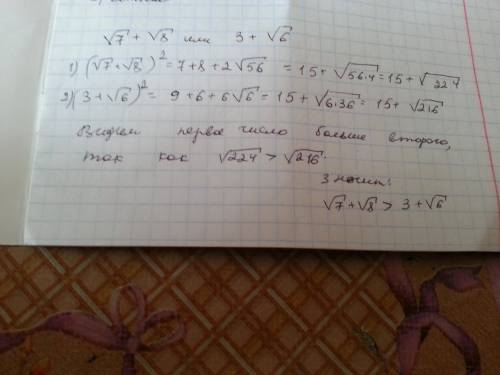 √7 + √8 или 3 + √6
1) (√7 + √8)² = 7 + 8 + 2√56 = 15 + √56·4 = 15 + √224
2) (3 + √6)² = 9 + 6 + 6√6 = 15 + √6·36 = 15 + √216
Видим первое число больше второго,
так как √224 > √216.
Значит:
√7 + √8 > 3 + √6